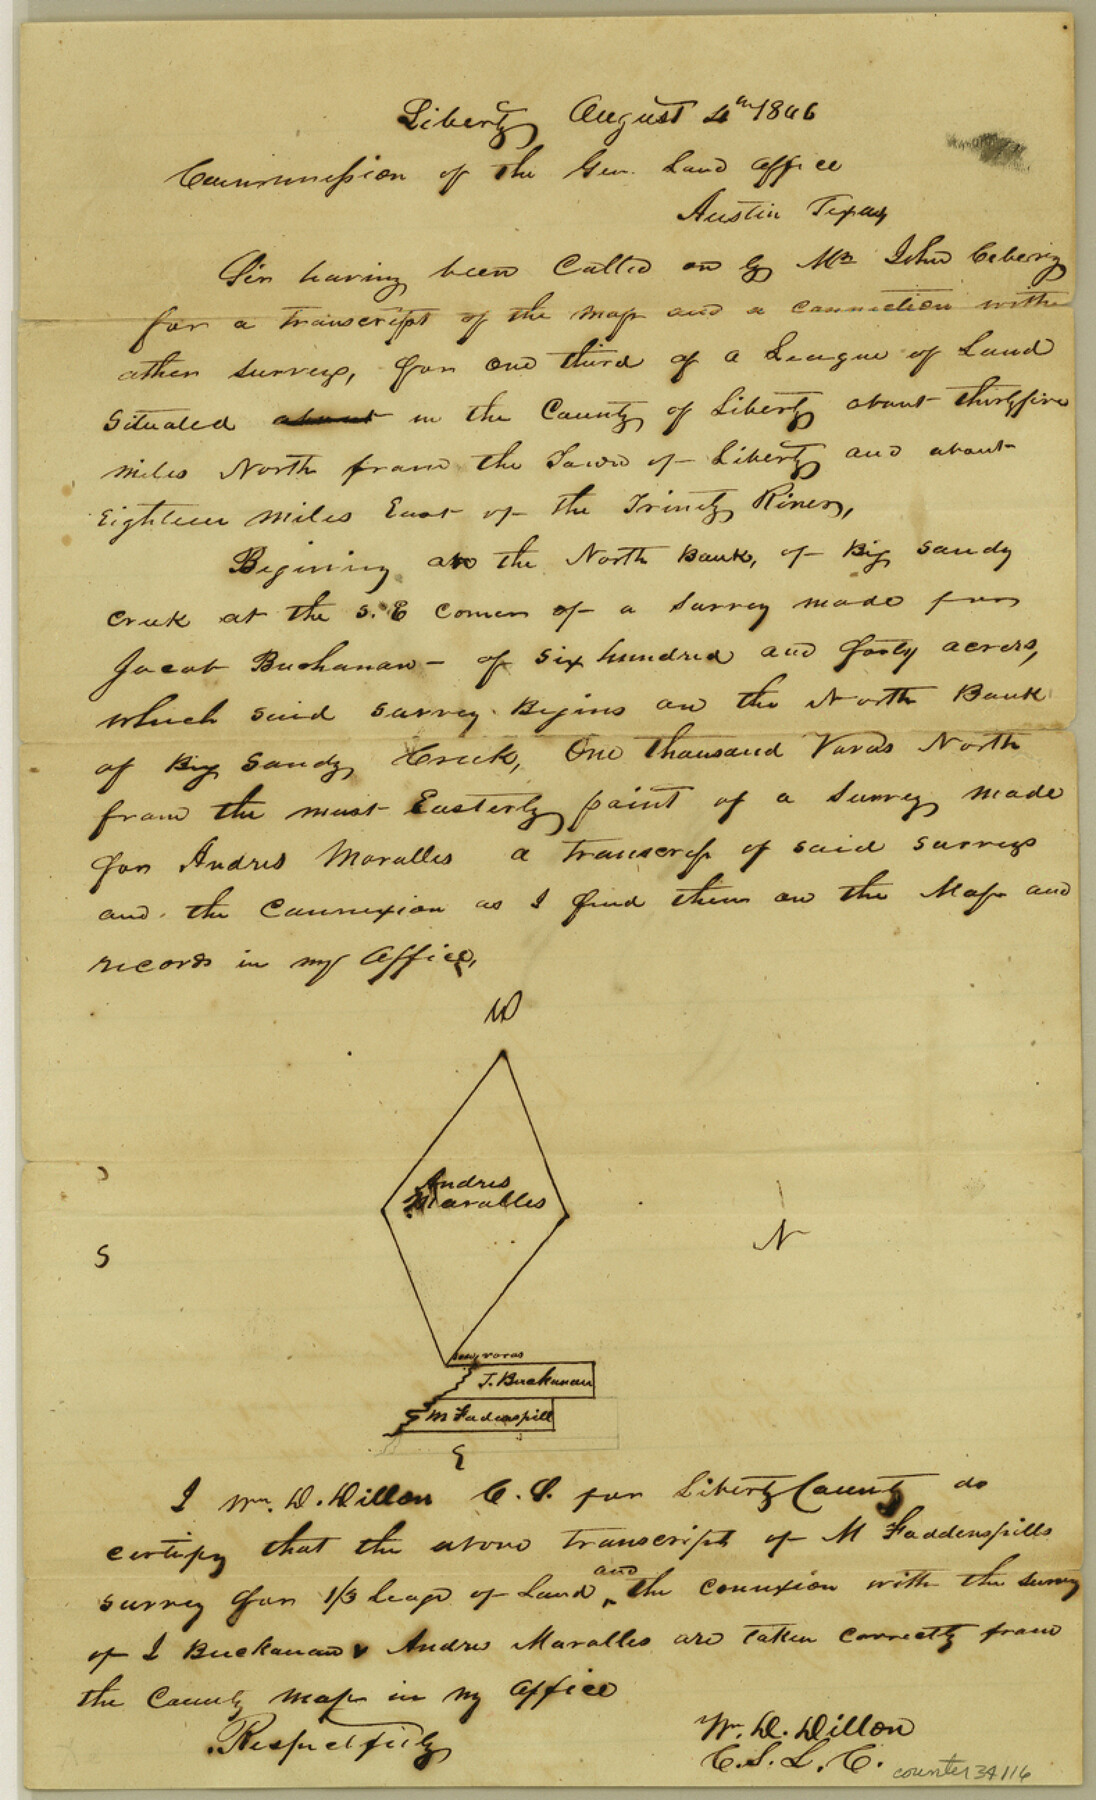 Liberty August 4th 1846
Commission of the Gen. Land Office
Austin Texas
Sir having been Called on by Mr John
for a transcript of the map and a connection with
other surveys, for one third of a League of Land
Situated about in the County of Liberty about thirtyfive
miles North from the Town of Liberty and about
Eighteen miles East of the Trinity River,
Begining at the North Bank, of Big Sandy
creek at the S. E corner of a survey made for
Jacob Buchanan - of six hundred and forty acres,
which said survey Begins on the North Bank
of Big Sandy Creek, One thousand Varas North
from the most Easterly point of a survey made
for Andres Moralles a transcrip of said surveys
and the Connexion as I find them on the Map and
records in my Office,
W
Andres
Maralles
S
N
varas
J. Buckanan
M Faddenspill
E
I Wm. D. Dillon C. S. for Liberty County do
certify that the above transcript of M Faddenspills
survey for 1/3 leage of Land and the connexion with the survey
of J Buckanan & Andres Maralles are taken correctly from
the County map in my office
Respectfully
Wm. D. Dillon
C. S. L. C.
counter 34116